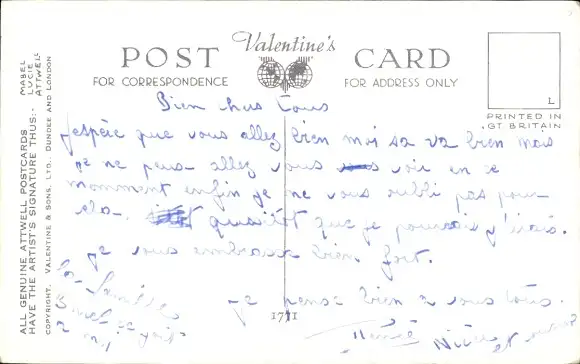 Valentine's
POST CARD
FOR CORRESPONDENCE
FOR ADDRESS ONLY
L
PRINTED IN
GT BRITAIN
ALL GENUINE ATTWELL POSTCARDS
HAVE THE ARTIST'S SIGNATURE THUS:-
MABEL
LUCIE
ATTWELL
COPYRIGHT. VALENTINE & SONS, LTD., DUNDEE AND LONDON
Bien Tous
J'espère que vous allez bien moi sa va bien mais
je ne peux allez vous voir en ce
momment enfin je ne vous oubli pas pour
ela. quaisitot que je pourrais j'irais.
Je vous embrasse bien fort.
Je pense bien a vous tous.
1771